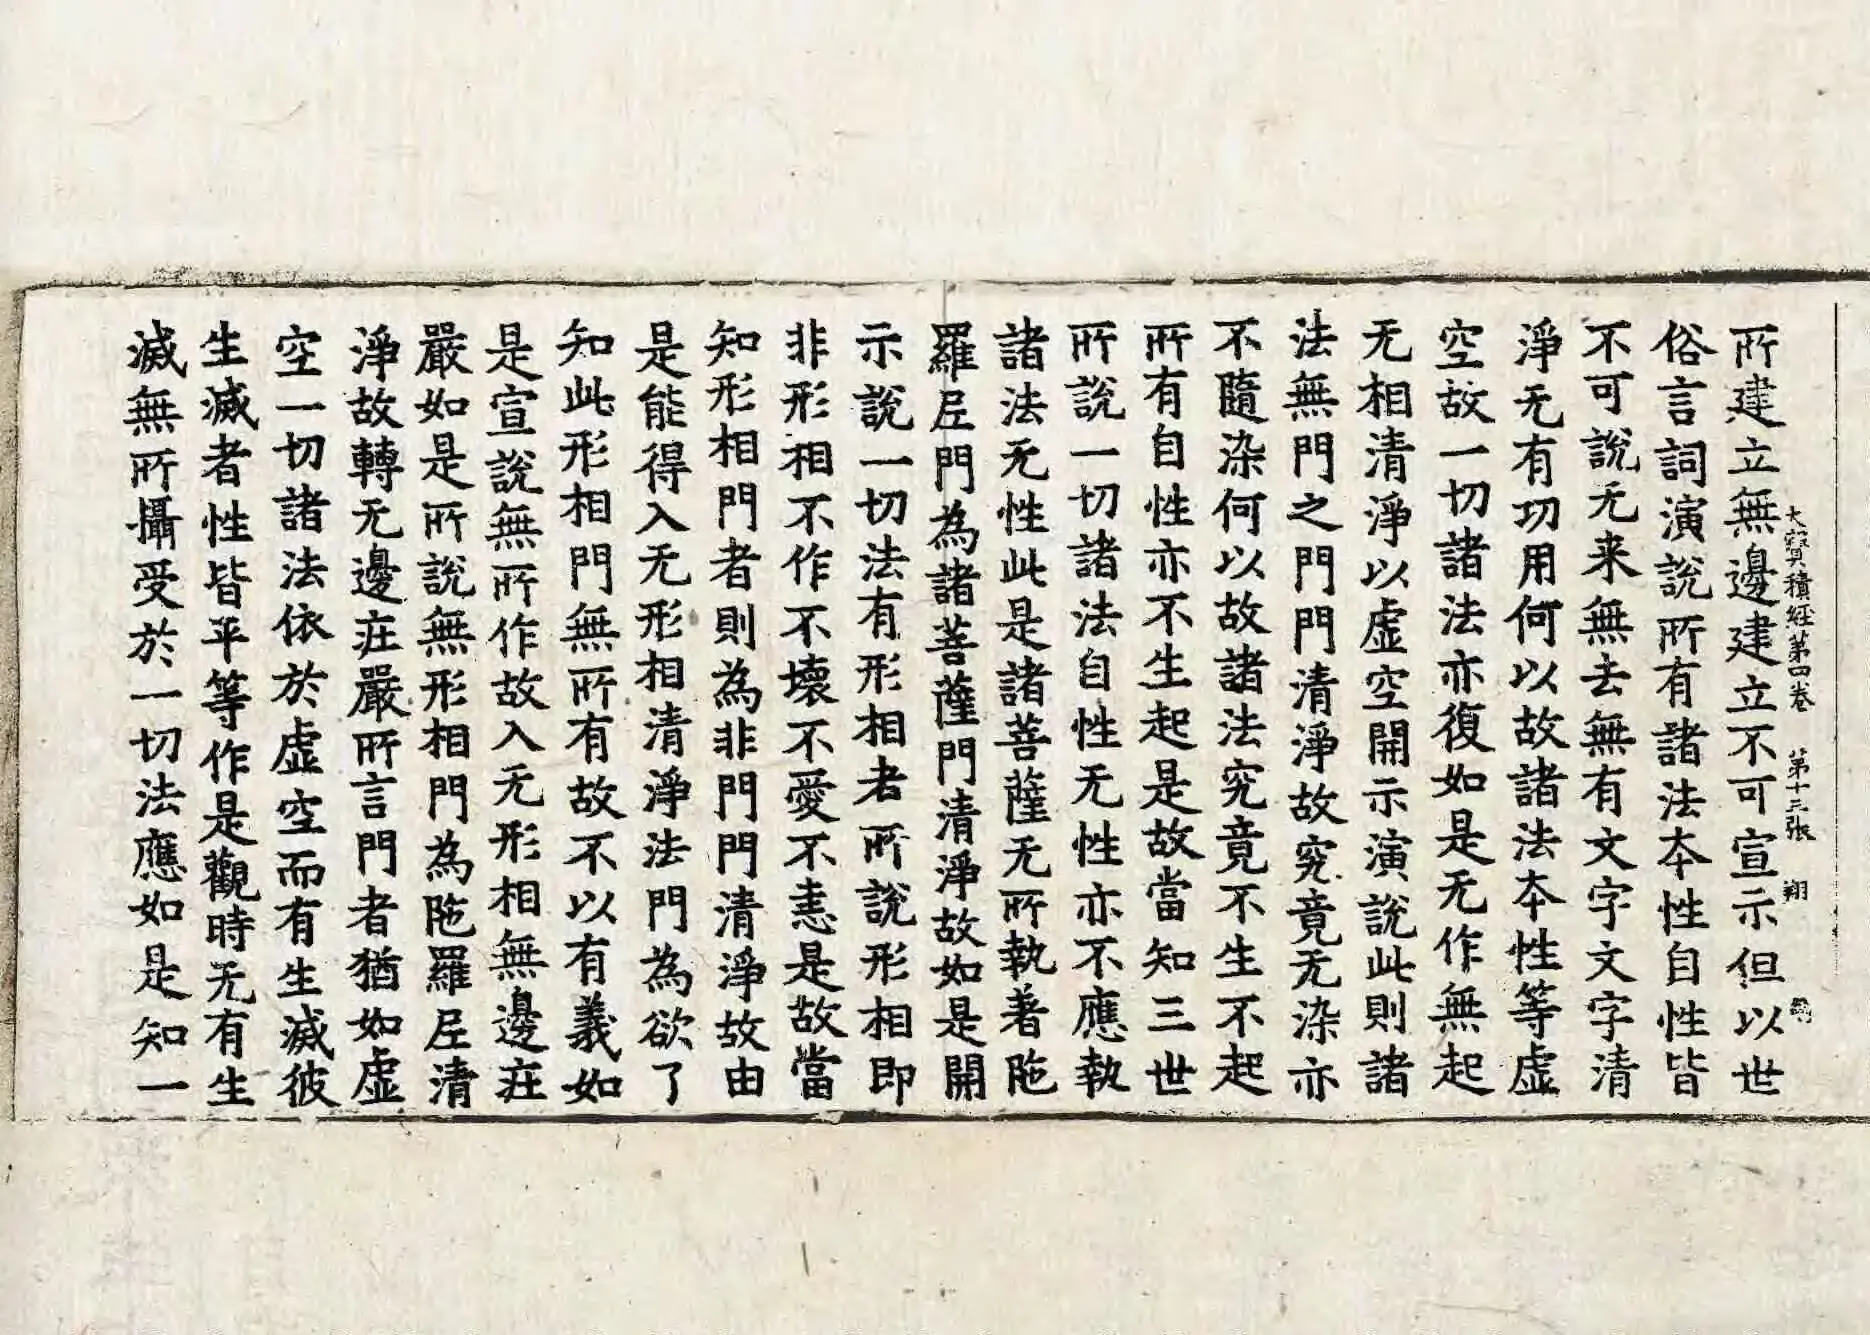 大寶積經第四卷 第十三張 翔
所建立無邊建立不可宣示但以世
俗言詞演說所有諸法本性自性皆
不可說无来無去無有文字文字清
淨无有功用何以故諸法本性等虛
空故一切諸法亦復如是无作無起
无相清淨以虛空開示演說此則諸
法無門之門門清淨故究竟无染亦
不隨染何以故諸法究竟不生不起
所有自性亦不生起是故當知三世
所說一切諸法自性无性亦不應執
諸法无性此是諸菩薩无所執著陁
羅𡰱門為諸菩薩門清淨故如是開
示說一切法有形相者所說形相即
非形相不作不壞不愛不恚是故當
知形相門者則為非門門清淨故由
是能得入无形相清淨法門為欲了
知此形相門無所有故不以有義如
是宣說無所作故入无形相無邊𤱶
嚴如是所說無形相門為陁羅𡰱清
淨故轉无邊𤱶嚴所言門者猶如虛
空一切諸法依於虛空而有生滅彼
生滅者性皆平等作是觀時无有生
滅無所攝受於一切法應如是知一